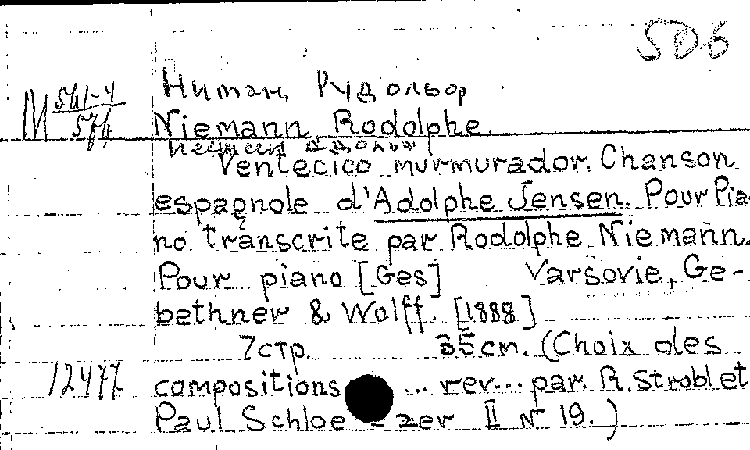 506
M 541-4/574
Ниман, Рудольф
Niemann, Rodolphe
Ventecico murmurador. Chanson
espagnole d'Adolphe Jensen. Pour Pia-
no transcrite par Rodolphe Niemann.
Pour piano [Ges] Varsovie, Ge-
bethner & Wolff. [1888]
7стр. 35cm. (Choix des
12477 compositions ... rev... par R. Strobl et
Paul Schloe - zer II № 19.)